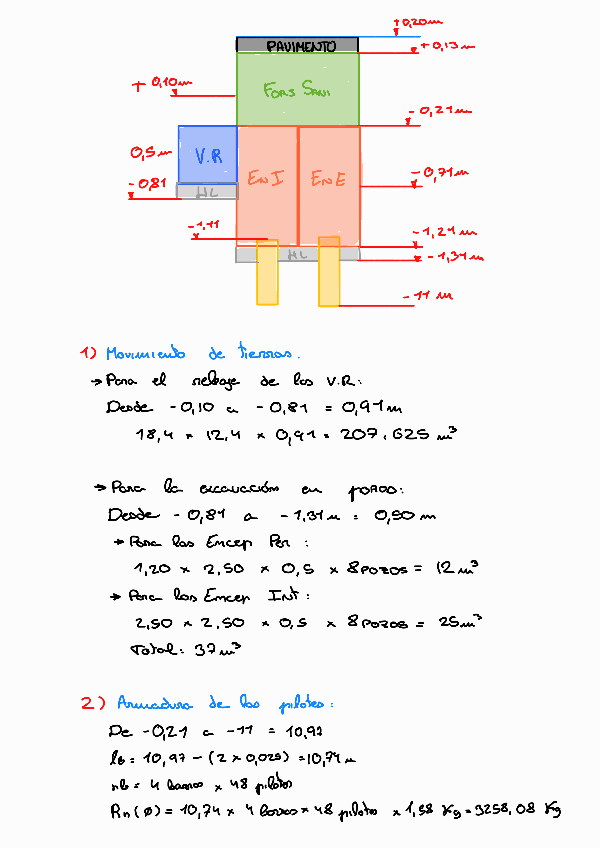 +0,20m
PAVIMENTO
+0,13m
+ 0,10m
Forj Sani
-0,21m
0,5m
V.R
En I
En E
-0,71m
-0,81
HL
-1,11
-1,21m
HL
-1,31m
-11 m
1) Movimiento de tierras.
→ Para el rebaje de las V.R:
Desde -0,10 a -0,81 = 0,91m
18,4 × 12,4 × 0,91 = 207.625 m³
→ Para la excavación en pozos:
Desde -0,81 a -1,31m = 0,50 m
→ Para los Encep Per:
1,20 × 2,50 × 0,5 × 8 pozos = 12 m³
→ Para los Encep INT:
2,50 × 2,50 × 0,5 × 8 pozos = 25m³
Total: 37m³
2) Armadura de los pilotes:
De -0,21 a -11 = 10,97
lb = 10,97 - (2 × 0,025) = 10,74m
nb = 4 barras × 48 pilotes
Rn(Ø) = 10,74 × 4 barras × 48 pilotes × 1,58 Kg = 3258,08 Kg